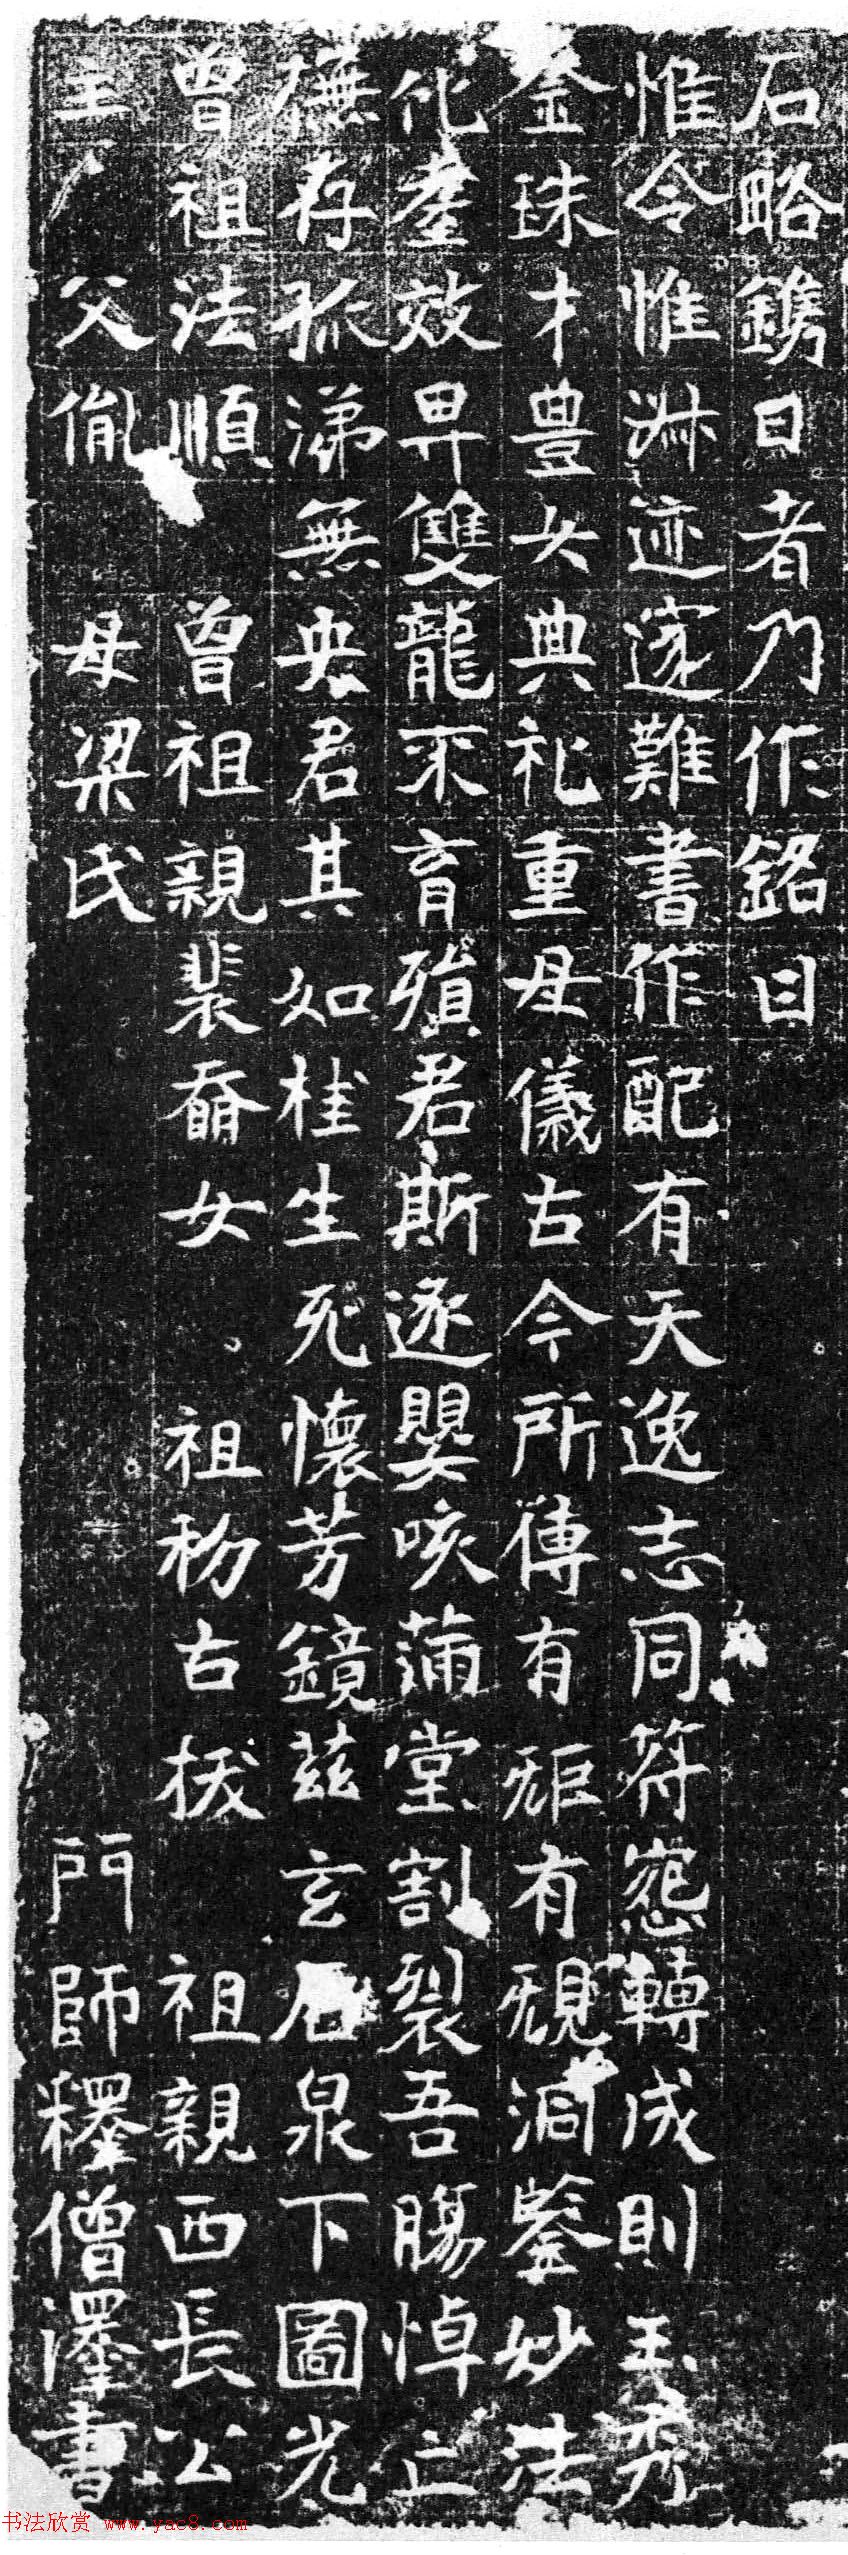 石略鐫日者乃作銘曰
惟令惟淋迹邃難書作配有天逸志同符惌轉成則玉秀
金珠才豊女典礼重母儀古今所傳有矩有規洞鑒妙法
化臺效畢雙龍不育殞君斯逐嬰咳蒲堂割裂吾腸悼亡
憮存孤涕無央君其如桂生死懷芳鏡茲玄石泉下圖光
曾祖法順 曾祖親裴斎女 祖初古拔 祖親西長公
主 父胤 母梁氏 門師釋僧澤書
书法欣赏 www.yac8.com